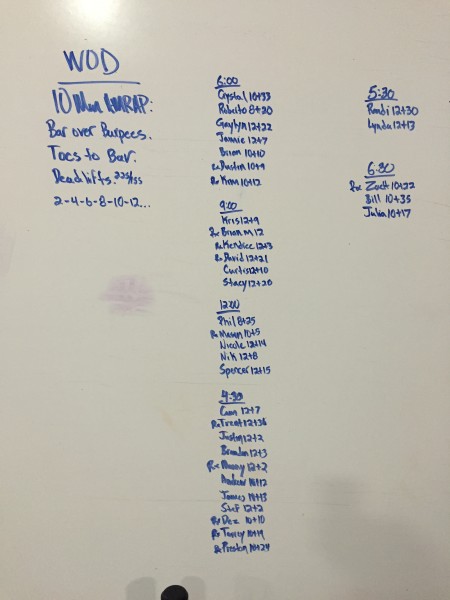 WOD
10 Min AMRAP:
Bar over Burpees.
Toes to Bar.
Deadlifts. 225/155
2-4-6-8-10-12...
6:00
Crystal 10+33
Roberto 8+20
Gaylyn 12+22
Jamie 12+7
Brian 10+10
Rx Dustin 10+9
Rx Kim 10+12
9:00
Kris 12+9
Rx Brian M 12
Rx Kendice 12+3
Rx David 12+21
Curtis 12+10
Stacy 12+20
12:00
Phil 8+25
Rx Mason 10+5
Nicole 12+14
Nik 12+8
Spencer 12+15
4:30
Cam 12+7
Rx Trent 12+36
Justin 12+2
Brandon 12+3
Rx 12+2
Andrew
James
Stef 12+2
Rx Dez 10+10
Rx
Rx Preston 10+24
5:30
Randi 12+30
Lynda 12+13
6:30
Rx Zach 10+22
Bill 10+35
Julia 10+17